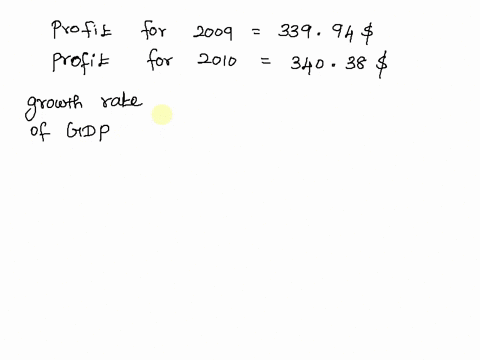 Profit for 2009 = 339.94 $
Profit for 2010 = 340.38 $
growth rate
of GDP